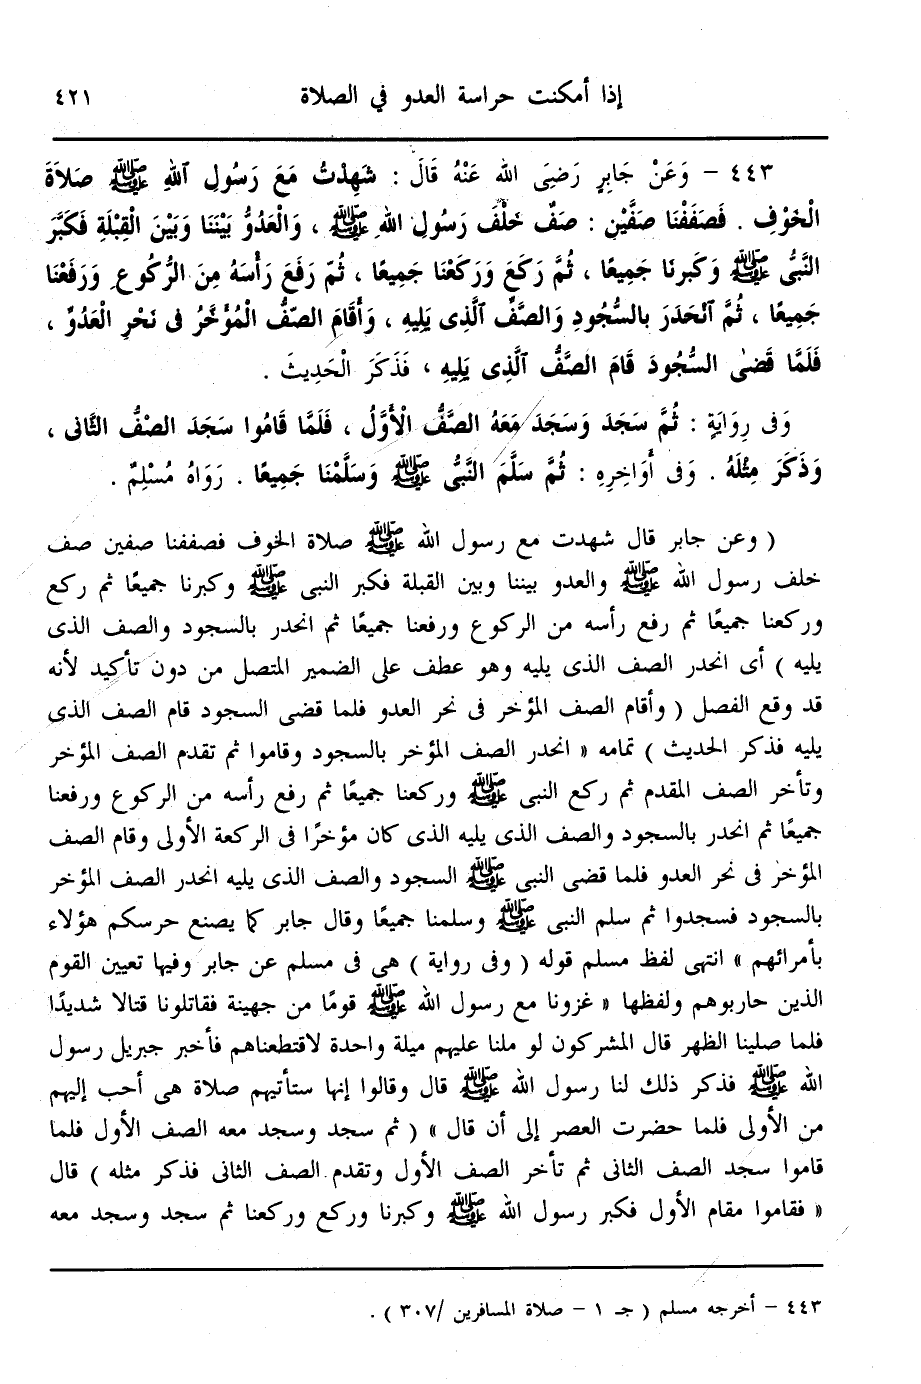 إذا أمكنت حراسة العدو في الصلاة ٤٢١
٤٤٣ – وَعَنْ جَابِرٍ رَضِىَ اللهُ عَنْهُ قَالَ : شَهِدْتُ مَعَ رَسُولِ ٱللهِ ﷺ صَلاَةَ
الْخَوْفِ . فَصَفَفْنَا صَفَّيْنِ : صَفٌ خَلْفَ رَسُولِ اللهِ ﷺ ، وَالْعَدُوُّ بَيْنَنَا وَبَيْنَ الْقِبْلَةِ فَكَبَّرَ
النَّبِىُّ ﷺ وَكَبرنَا جَمِيعًا ، ثُمَّ رَكَعَ وَرَكَعْنَا جَمِيعًا ، ثُمّ رَفَعَ رَأْسَهُ مِنَ الرُّكُوعِ وَرَفَعْنَا
جَمِيعًا ، ثُمَّ ٱنْحَدَرَ بالسُّجُودِ وَالصَّفُّ ٱلَّذِى يَلِيهِ ، وَأَقَامَ الصّفُّ الْمُؤَخَّرُ فى نَحْرِ الْعَدُوِّ ،
فَلَمَّا قَضىٰ السُّجُودَ قَامَ الصَّفُّ ٱلَّذِى يَلِيهِ ، فَذَكَرَ الْحَدِيثَ .
وَفى رِوَايَةٍ : ثُمَّ سَجَدَ وَسَجَدَ مَعَهُ الصَّفُّ الْأَوَّلُ ، فَلَمَّا قَامُوا سَجَدَ الصْفُّ الثَّانى ،
وَذَكَرَ مِثْلَهُ . وَفى أَوَاخِرِهِ : ثُمَّ سَلَّمَ النَّبىُّ ﷺ وَسَلَّمْنَا جَمِيعًا . رَوَاهُ مُسْلِمٌ .
( وعن جابر قال شهدت مع رسول الله ﷺ صلاة الخوف فصففنا صفين صف
خلف رسول الله ﷺ والعدو بيننا وبين القبلة فكبر النبى ﷺ وكبرنا جميعًا ثم ركع
وركعنا جميعًا ثم رفع رأسه من الركوع ورفعنا جميعًا ثم انحدر بالسجود والصف الذى
يليه ) أى انحدر الصف الذى يليه وهو عطف على الضمير المتصل من دون تأكيد لأنه
قد وقع الفصل ( وأقام الصف المؤخر فى نحر العدو فلما قضى السجود قام الصف الذى
يليه فذكر الحديث ) تمامه « انحدر الصف المؤخر بالسجود وقاموا ثم تقدم الصف المؤخر
وتأخر الصف المقدم ثم ركع النبى ﷺ وركعنا جميعًا ثم رفع رأسه من الركوع ورفعنا
جميعًا ثم انحدر بالسجود والصف الذى يليه الذى كان مؤخرًا فى الركعة الأولى وقام الصف
المؤخر فى نحر العدو فلما قضى النبى ﷺ السجود والصف الذى يليه انحدر الصف المؤخر
بالسجود فسجدوا ثم سلم النبى ﷺ وسلمنا جميعًا وقال جابر كما يصنع حرسكم هؤلاء
بأمرائهم » انتهى لفظ مسلم قوله ( وفى رواية ) هى فى مسلم عن جابر وفيها تعيين القوم
الذين حاربوهم ولفظها « غزونا مع رسول الله ﷺ قومًا من جهينة فقاتلونا قتالا شديدًا
فلما صلينا الظهر قال المشركون لو ملنا عليهم ميلة واحدة لاقتطعناهم فأخبر جبريل رسول
الله ﷺ فذكر ذلك لنا رسول الله ﷺ قال وقالوا إنها ستأتيهم صلاة هى أحب إليهم
من الأولى فلما حضرت العصر إلى أن قال » ( ثم سجد وسجد معه الصف الأول فلما
قاموا سجد الصف الثانى ثم تأخر الصف الأول وتقدم الصف الثانى فذكر مثله ) قال
« فقاموا مقام الأول فكبر رسول الله ﷺ وكبرنا وركع وركعنا ثم سجد وسجد معه
٤٤٣ – أخرجه مسلم ( جـ ١ – صلاة المسافرين /٣٠٧ ) .